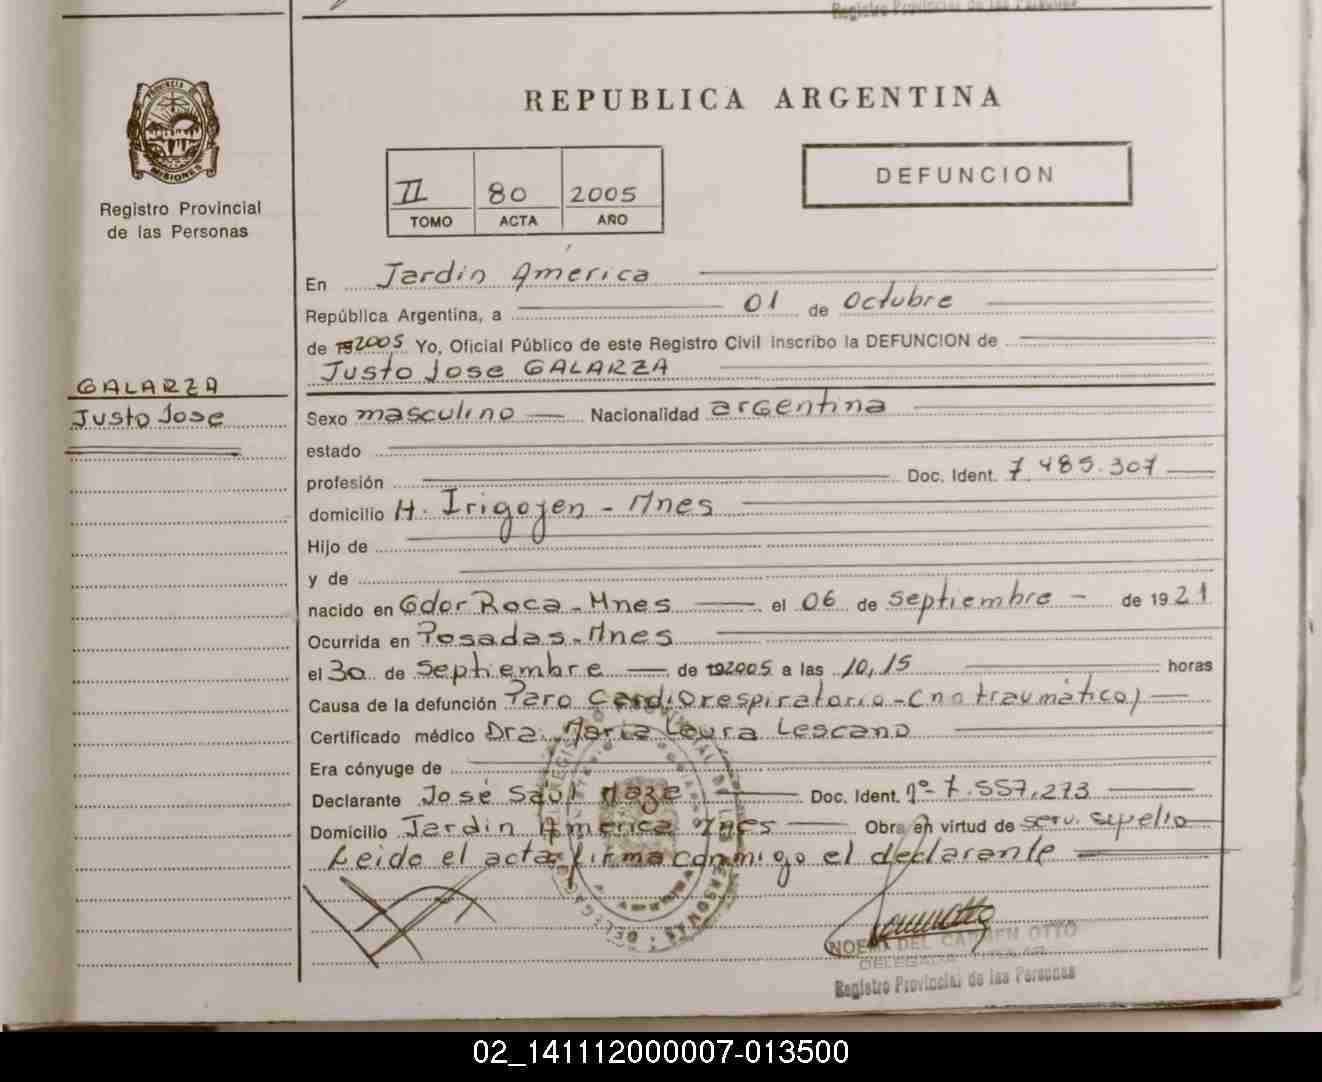 Registro Provincial de las Personas
PROVINCIA DE
MISIONES
Registro Provincial
de las Personas
REPUBLICA ARGENTINA
II 80 2005
TOMO ACTA AÑO
DEFUNCION
En Jardin América
República Argentina, a 01 de Octubre
de 192005 Yo, Oficial Público de este Registro Civil inscribo la DEFUNCION de
Justo Jose GALARZA
GALARZA
Justo Jose
Sexo masculino Nacionalidad argentina
estado
profesión Doc. Ident. 7.485.307
domicilio H. Irigoyen - Mnes
Hijo de
y de
nacido en Gdor Roca - Mnes el 06 de septiembre - de 1921
Ocurrida en Posadas - Mnes
el 30 de septiembre de 192005 a las 10,15 horas
Causa de la defunción Paro Cardiorespiratorio - (no traumático)
Certificado médico Dra. María Laura Lescano
Era cónyuge de
Declarante José Saúl Doc. Ident. nº 7.557.273
Domicilio Jardin América Mnes Obra en virtud de serv. sepelio
Leido el acta firma conmigo el declarante
NOEMI DEL CARMEN OTTO
DELEGADA TITULAR
Registro Provincial de las Personas
02_141112000007-013500